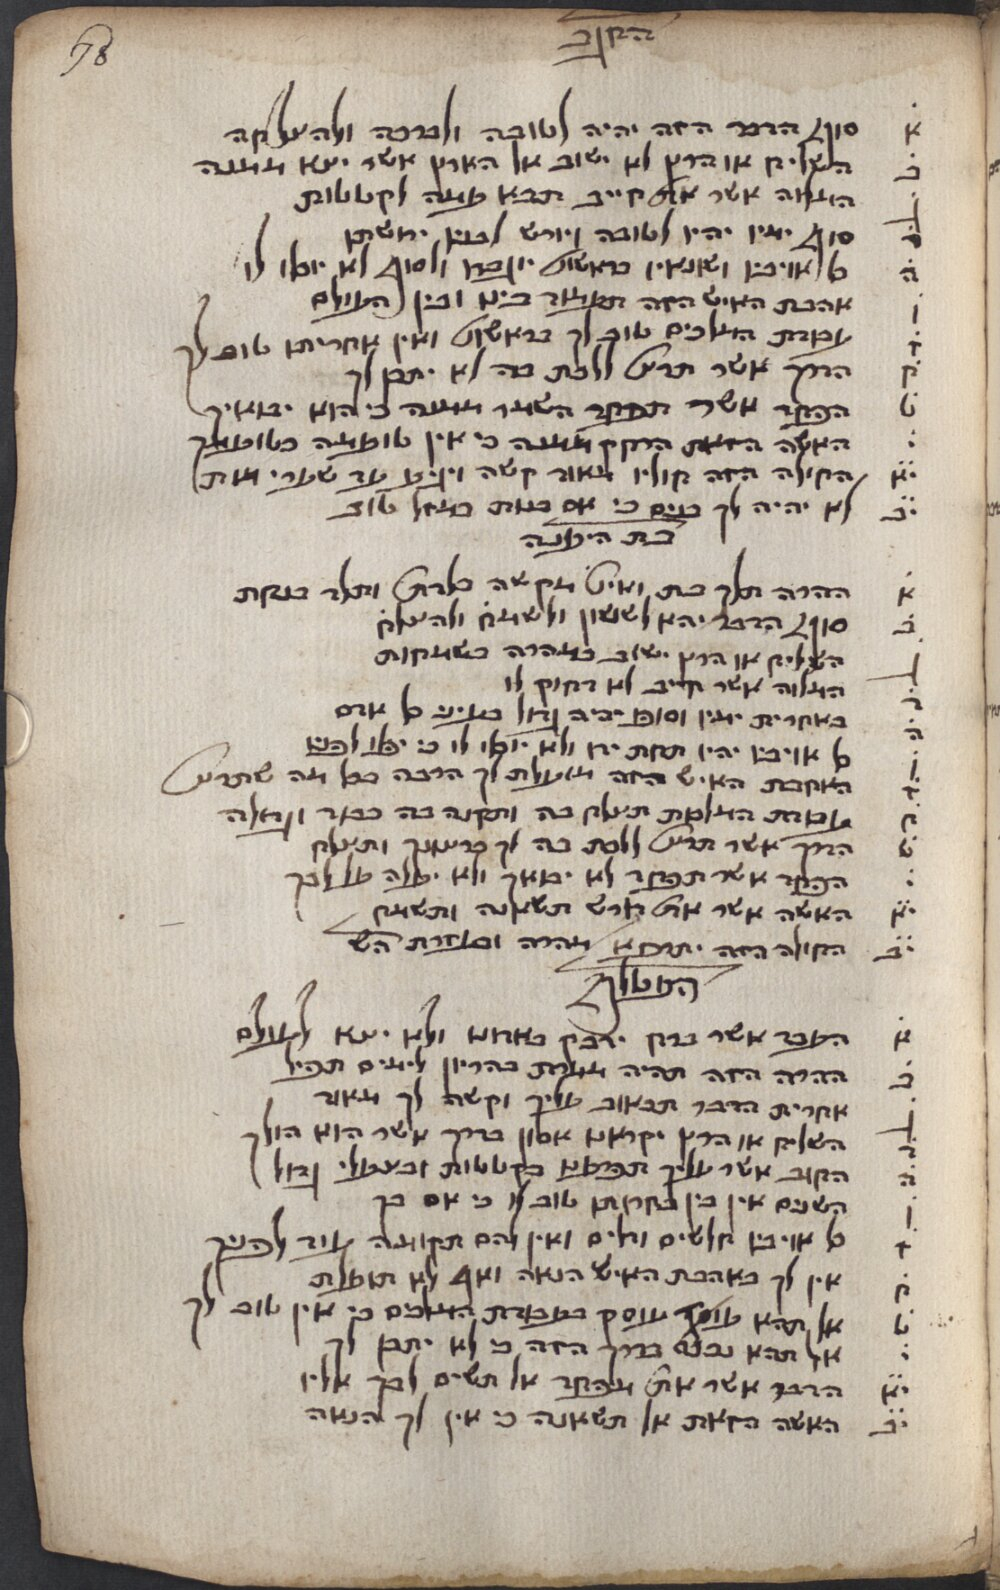 78
הקנב
א סוף הדבר הזה יהיה לטובה ולברכה ולהצלחה
ב השליח או הרץ לא ישוב אל הארץ אשר יצא ממנה
ג המלוה אשר אתה חייב תבא עמה לקטטות
ד סוף ימיו יהיו לטובה ויורש לבניו ירושתו
ה כל אויביו ושונאיו בראשונה ולסוף לא יוכלו לו
ו אהבת האיש הזה תעמוד בינו ובין העולם
ז עבודת המלכים טוב לך בראשונה ואין אחריתו טוב לך
ח הדרך אשר תרצה ללכת בה לא יתכן לך
ט הפחד אשר תפחד השמר ממנה כי הוא יבואיך
י האשה הזאת הרחק ממנה כי אין טובתה כטובתך
יא החולה הזה חוליו מאוד קשה ויגיע עד שערי מות
יב לא יהיה לך בנים כי אם בנות במזל טוב
בת היענה
א ההרה תלד בת ואינה מקשה בלדתה ותלד בנחת
ב סוף הדבר יהא לששון ולשמחה ולהצלחה
ג השליח או הרץ ישוב במהרה בשמחות
ד המלוה אשר חייב לא רחוק לו
ה באחרית ימיו וסופו יהיה גדול בעיני כל אדם
ו כל אויביו יהיו תחת ידו ולא יוכלו לו כי יפלו לפניו
ז האהבת האיש הזה מועלת לך הרבה בכל מה שתרצה
ח עבודת המלכות תצלח בה ותקנה בה כבוד וגדולה
ט הדרך אשר תרצה ללכת בה לך כרצונך ותצלח
י הפחד אשר תפחד לא יבואך ולא יעלה על לבך
יא האשה אשר אתה דורש תשאנה ותשמח
יב החולה הזה יתרפא מהרה ובעזרת הש׳
העטלף
א העבד אשר ברח ידבק באדוניו ולא יצא לעולם
ב ההרה הזה תהיה מעוברת בהריון לימים תפיל
ג אחרית הדבר תכאוב עליך וקשה לך מאוד
ד השליח או הרץ יקראנו אסון בדרך אשר הוא הולך
ה החוב אשר עליך תפרענו בקטטות ובצער גדול
ו השנים אין בין באחריתו טוב לו כי אם כך
ז כל אויביו חלשים ודלים ואין להם תקומה עוד לפניך
ח אין לך באהבת האיש הנאה ואף לא תועלת
ט אל תהא עוסק בעבודת המלכים כי אין טוב לך
י אל תהא נכנס בדרך הזה כי לא יתכן לך
יא הדבר אשר אתה מפחד אל תשים לבך אליו
יב האשה הזאת אל תשאנה כי אין לך הנאה